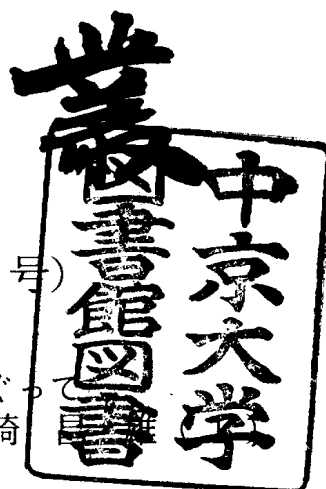 叢
中京大学
図書館図書
号)
って